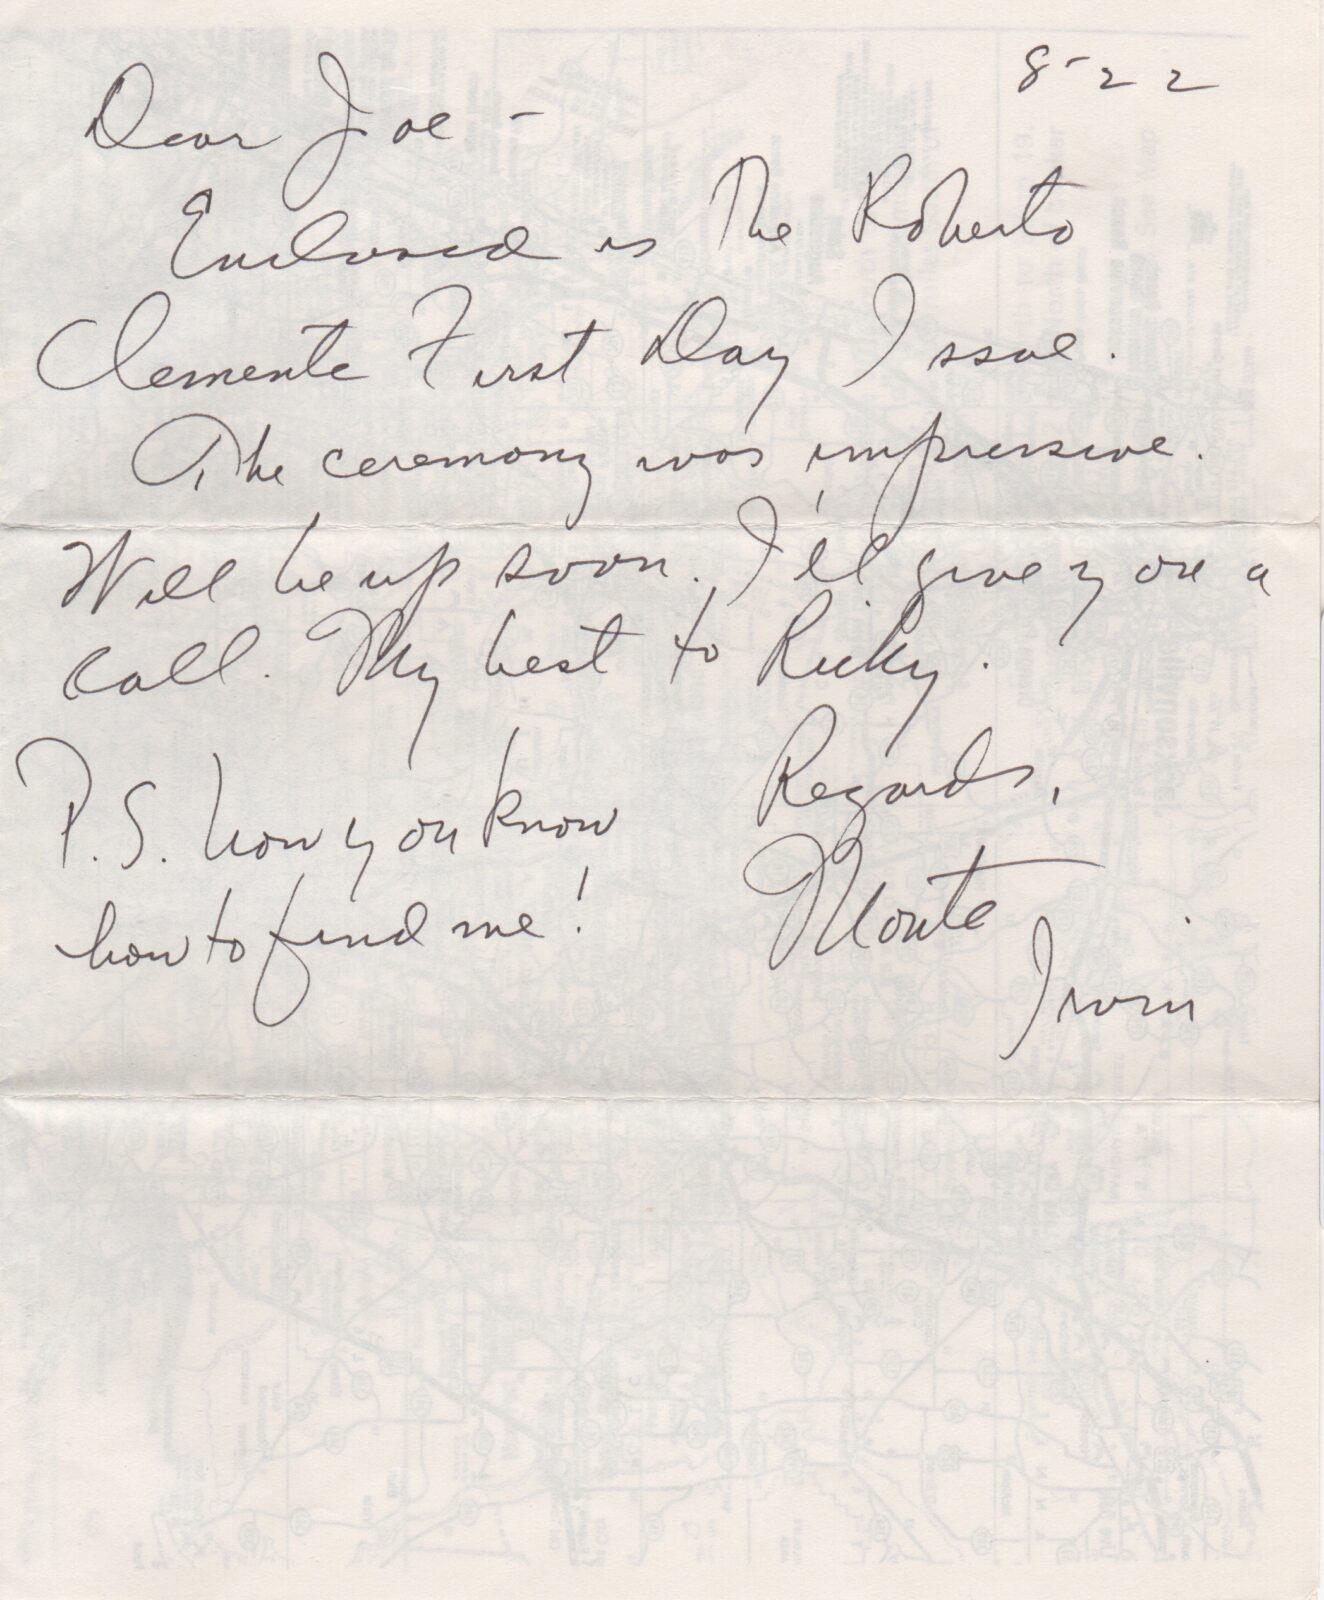 8-22
Dear Joe -
Enclosed is The Roberto
Clemente First Day Issue.
The ceremony was impressive.
Will be up soon. I'll give you a
call. My best to Ricky.
Regards,
P.S. how you know
how to find me!
Monte
Irvin